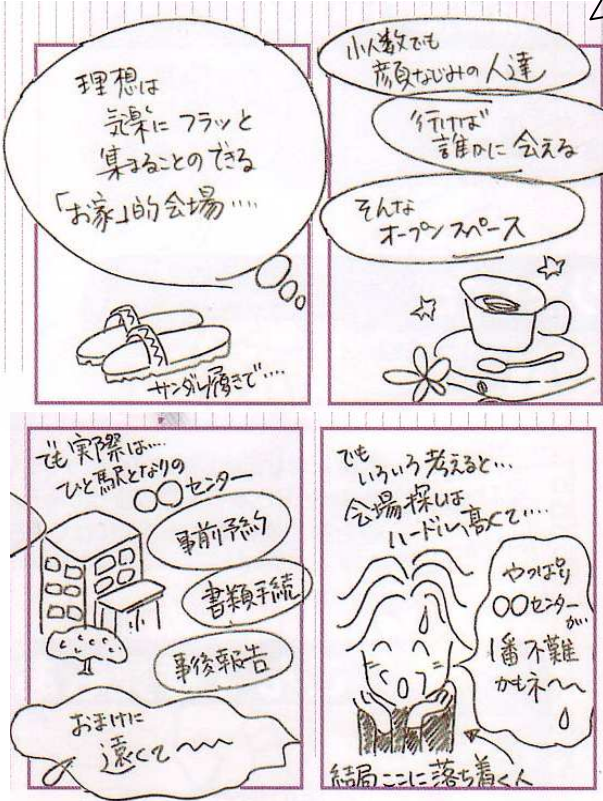 理想は
気楽に フラッと
集まることの できる
「お家」的会場‥‥
サンダル履きで‥‥
小人数でも
顔なじみの人達
行けば
誰かに会える
そんな
オープンスペース
でも実際は‥‥
ひと駅となりの
○○センター
事前予約
書類手続
事後報告
おまけに
遠くて〜〜
でも
いろいろ考えると…
会場探しは
ハードル高くて‥‥
やっぱり
○○センターが
1番不難
かもネ〜〜
結局ここに落ち着く人